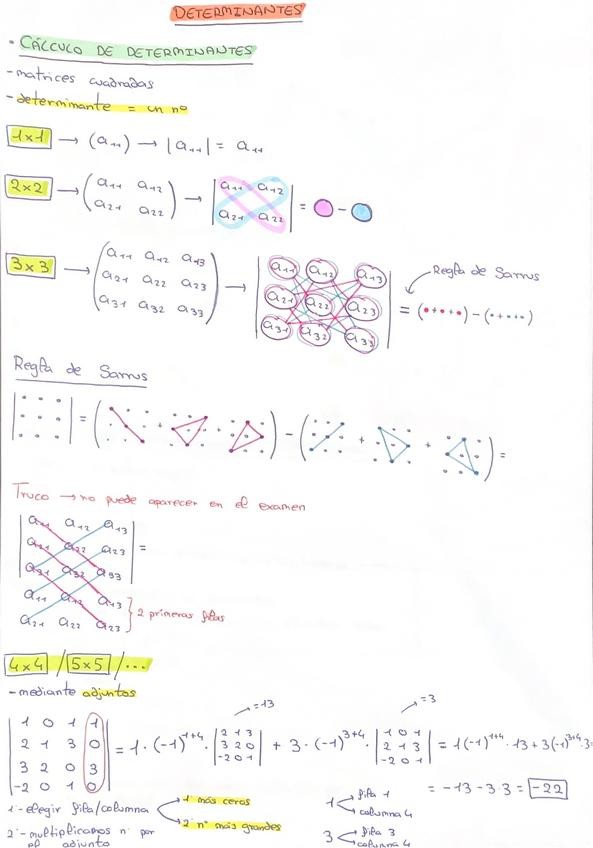 DETERMINANTES
· CÁLCULO DE DETERMINANTES
- matrices cuadradas
- determinante = un nº
1x1 → (a₁₁) → |a₁₁| = a₁₁
2x2 → ( a₁₁ a₁₂ ) → | a₁₁ a₁₂ | = ● - ●
a₂₁ a₂₂ a₂₁ a₂₂
3x3 → ( a₁₁ a₁₂ a₁₃ ) → | a₁₁ a₁₂ a₁₃ | Regla de Sarrus
a₂₁ a₂₂ a₂₃ a₂₁ a₂₂ a₂₃ = (•+•+•) - (•+•+•)
a₃₁ a₃₂ a₃₃ a₃₁ a₃₂ a₃₃
Regla de Sarrus
= ( + + ) - ( + + ) =
Truco → no puede aparecer en el examen
a₁₁ a₁₂ a₁₃
a₂₁ a₂₂ a₂₃ =
a₃₁ a₃₂ a₃₃
a₁₁ a₁₂ a₁₃
a₂₁ a₂₂ a₂₃ } 2 primeras filas
4x4 / 5x5 / ...
- mediante adjuntos
=13 =3
1 0 1 1 | 2 1 3 | 1 0 1
2 1 3 0 = 1·(-1)¹⁺⁴· | 3 2 0 | + 3·(-1)³⁺⁴· | 2 1 3 | = 1(-1)¹⁺⁴·13+3(-1)³⁺⁴·3=
3 2 0 3 | -2 0 1 | -2 0 1
-2 0 1 0 = -13-3·3= -22
1·- elegir fila/columna 1· más ceros
2· nº más grandes
2·- multiplicamos nº por
el adjunto
1 fila 1
columna 4
3 fila 3
columna 4